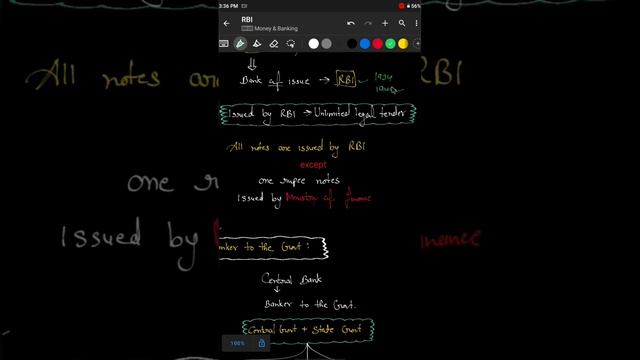 3:36 PM
56%
RBI
Money & Banking
Bank of issue → RBI
1934
Issued by RBI → Unlimited legal tender
All notes are issued by RBI
except
one rupee notes
Issued by Ministry of finance
nker to the Govt:
Central Bank
Banker to the Govt.
Central Govt + State Govt
100%
All notes are
RBI
one ru
Issued by